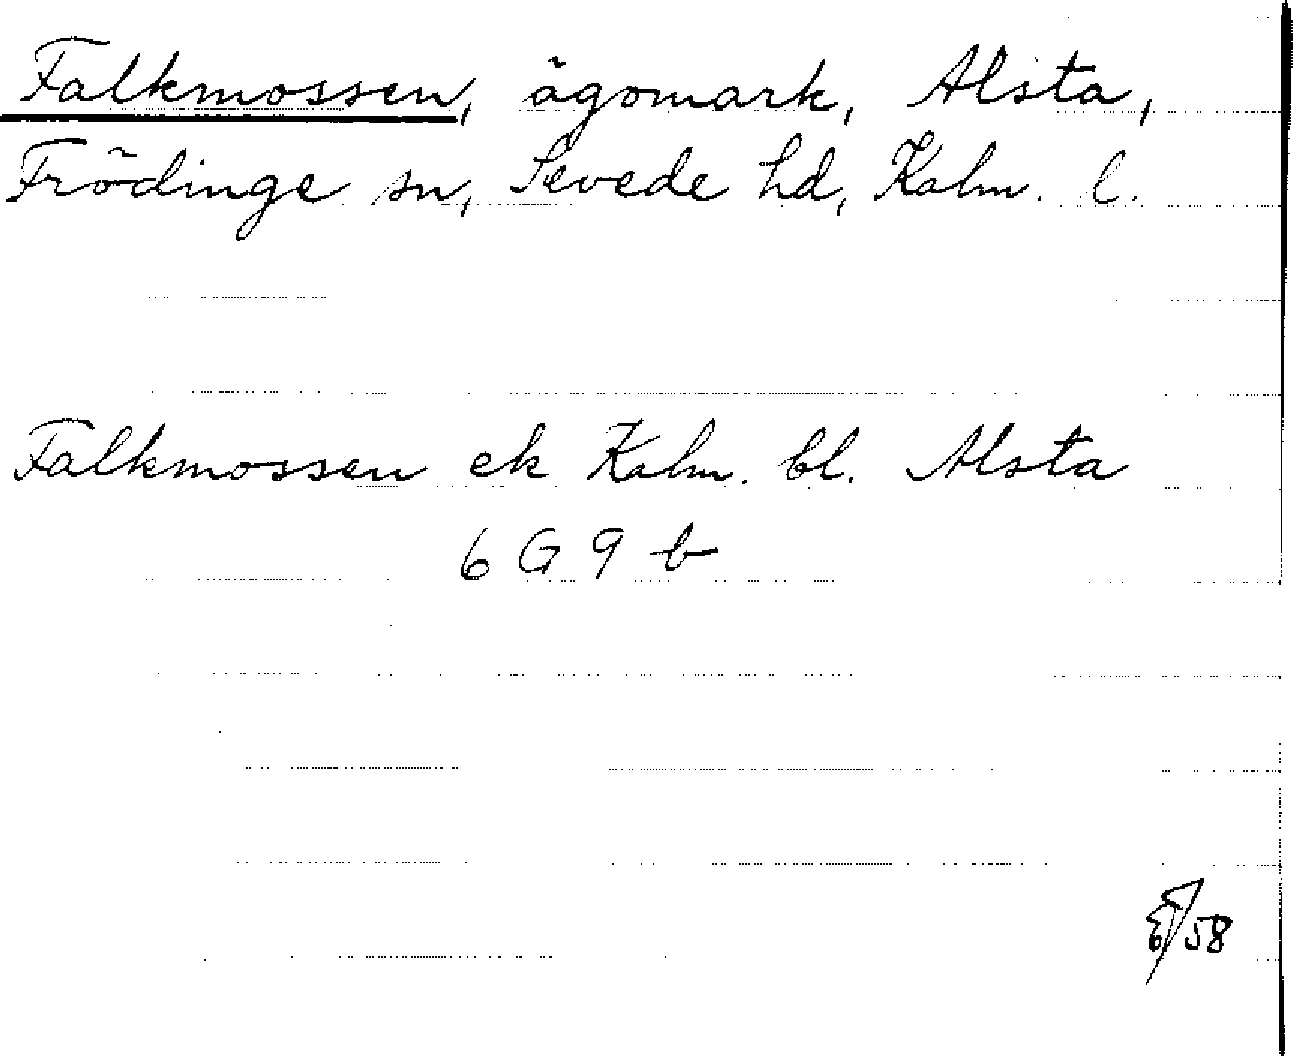 Falkmossen, ägomark, Alsta,
Frödinge sn, Sevede hd, Kalm. l.
Falkmossen ek Kalm. bl. Alsta
6 G 9 b
58